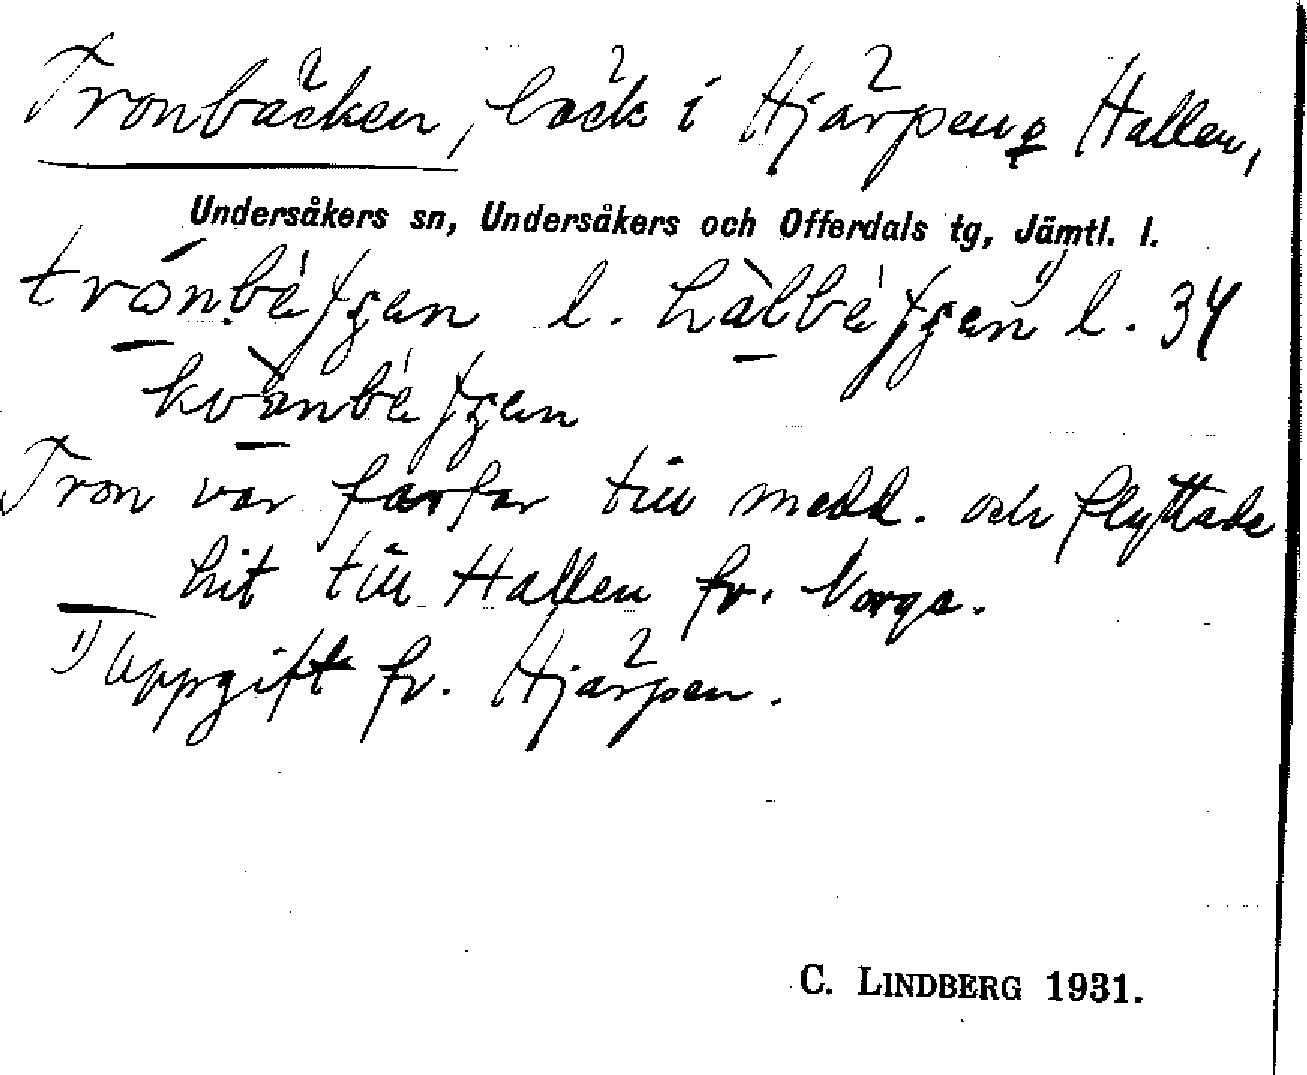 Tronbäcken, bäck i Hjärpen o Hallen,
Undersåkers sn, Undersåkers och Offerdals tg, Jämtl. l.
l. l. 34
Tron var farfar till medd. och flyttade
hit till Hallen fr. Norge.
1) Uppgift fr. Hjärpen.
C. LINDBERG 1931.